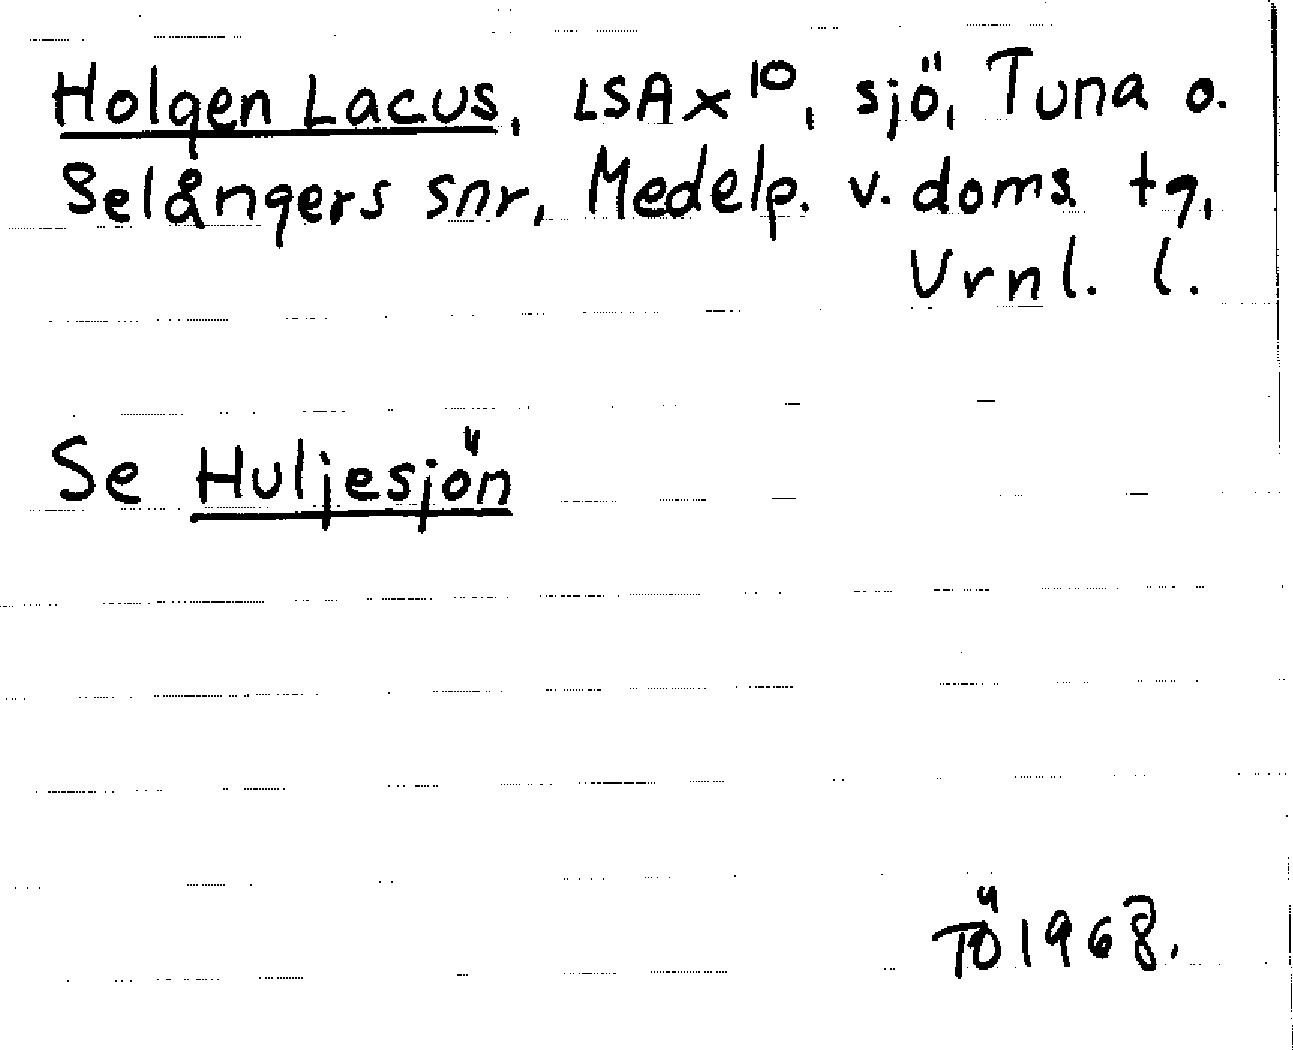 Holgen Lacus, LSA x¹⁰, sjö, Tuna o.
Selångers snr, Medelp. v. doms. tg,
Vrnl. l.
Se Huljesjön
TÖ 1968.